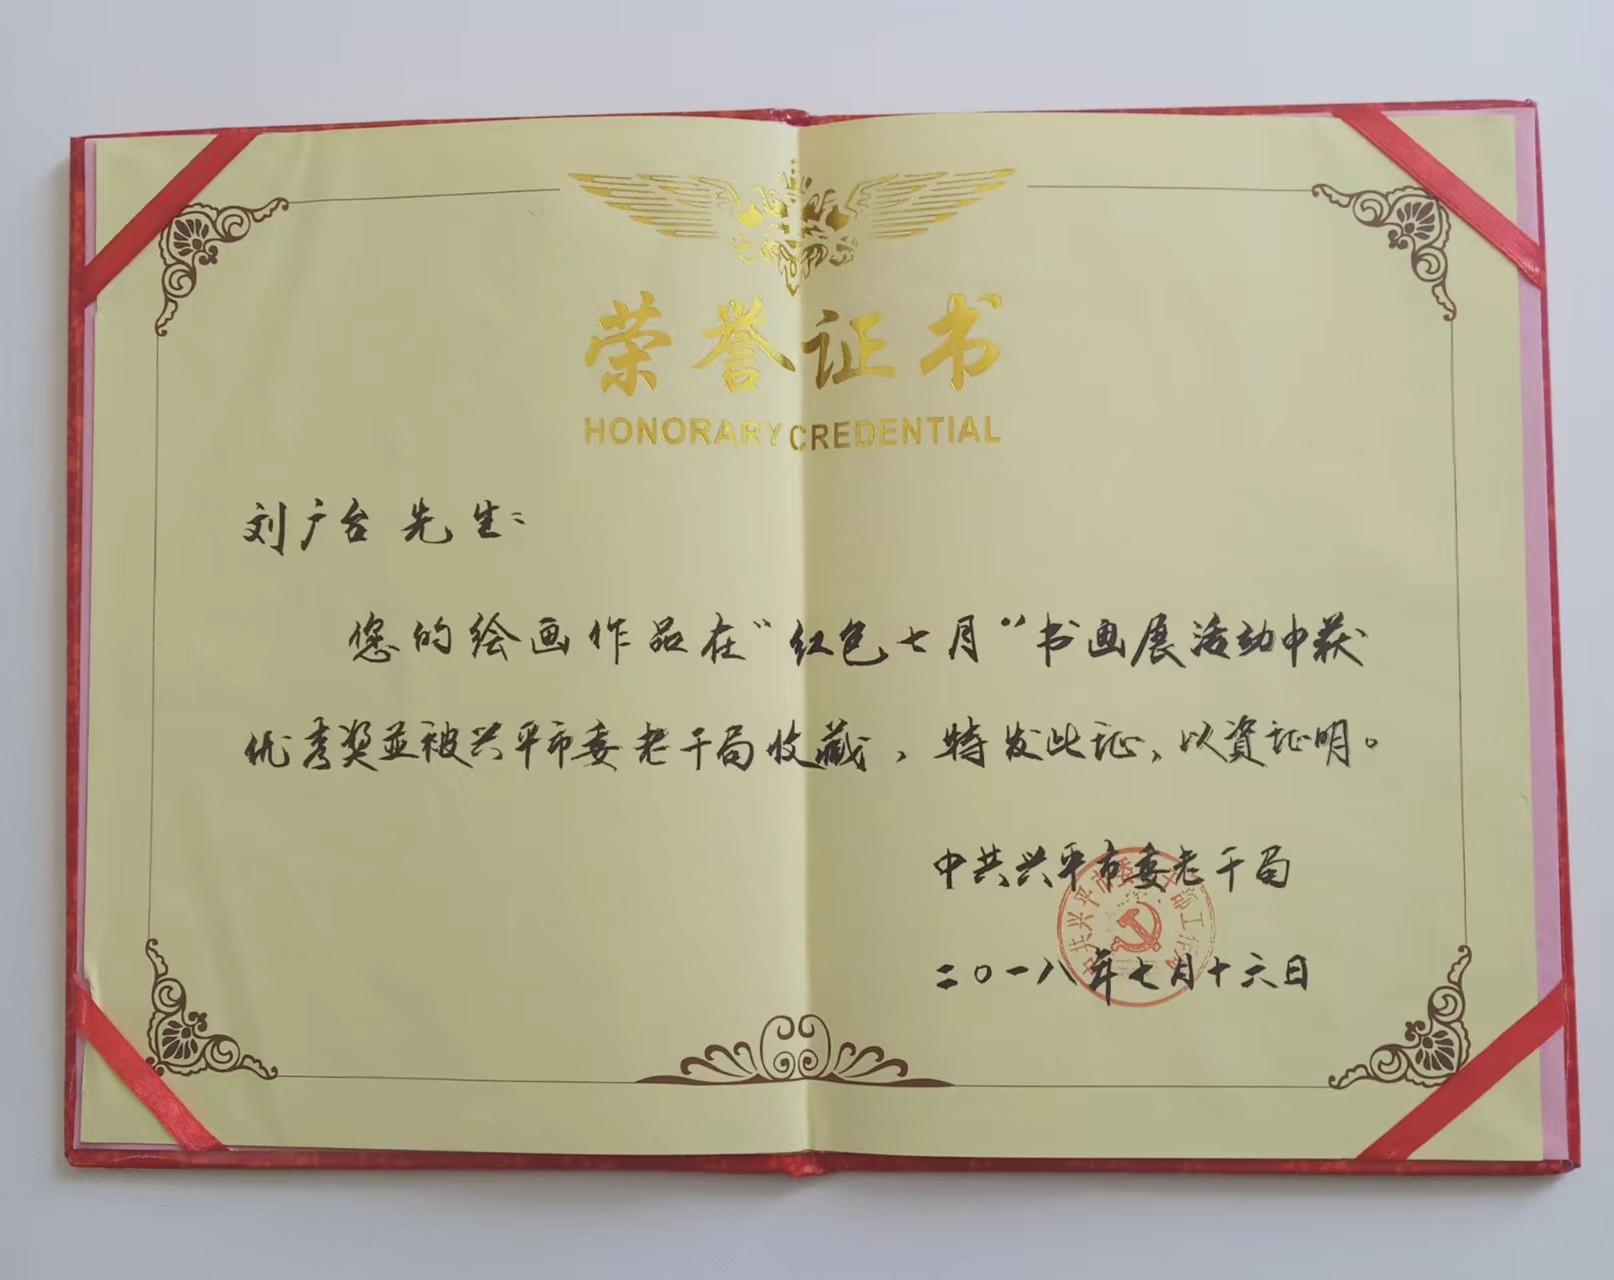 荣誉证书
HONORARY CREDENTIAL
刘广台先生：
您的绘画作品在“红色七月”书画展活动中获
优秀奖并被兴平市委老干局收藏，特发此证，以资证明。
中共兴平市委老干局
二〇一八年七月十六日
中共兴平市委老干部工作局